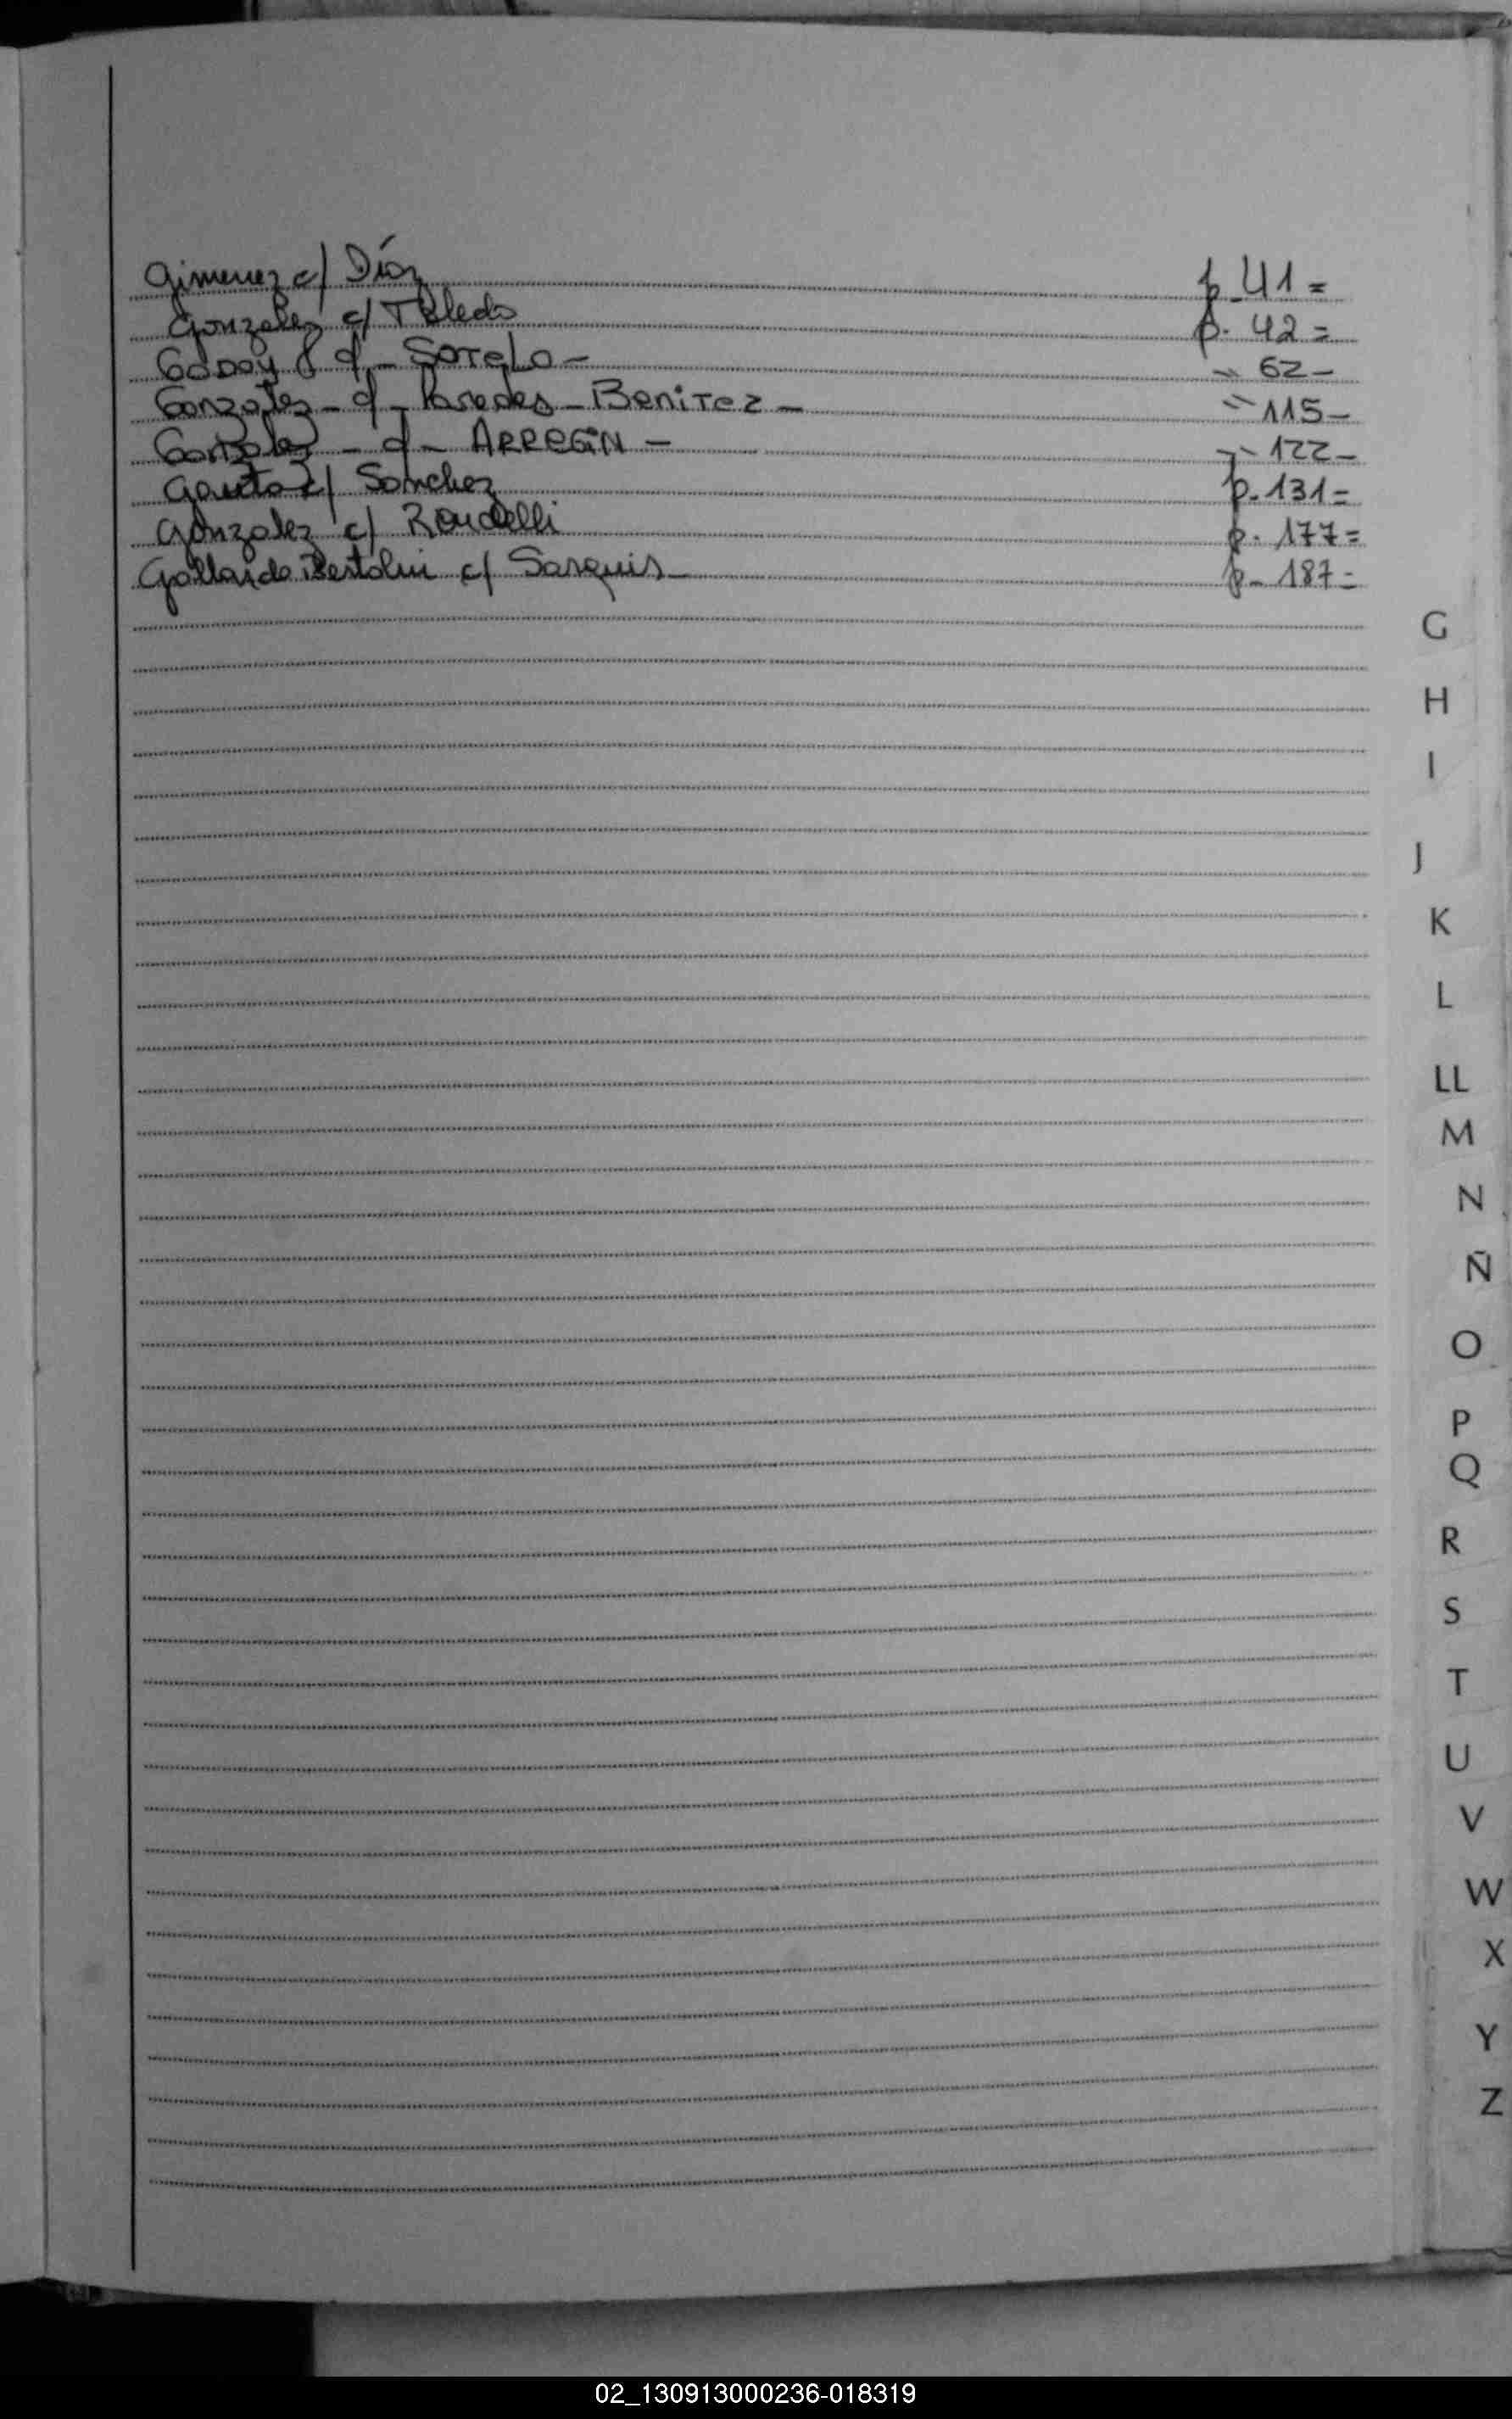 Gimenez c/ Díaz p. 41=
Gonzalez c/ Toledo p. 42=
Godoy c/ - Sotelo - " 62-
Gonzalez - c/ - Paredes - Benitez - " 115-
Gonzalez - c/ - ARREGIN - " 122-
Gauto c/ Sanchez p. 131=
Gonzalez c/ Rondelli p. 177=
Gallardo Bertolini c/ Sarquis - p- 187=
G
H
I
J
K
L
LL
M
N
Ñ
O
P
Q
R
S
T
U
V
W
X
Y
Z
02_130913000236-018319